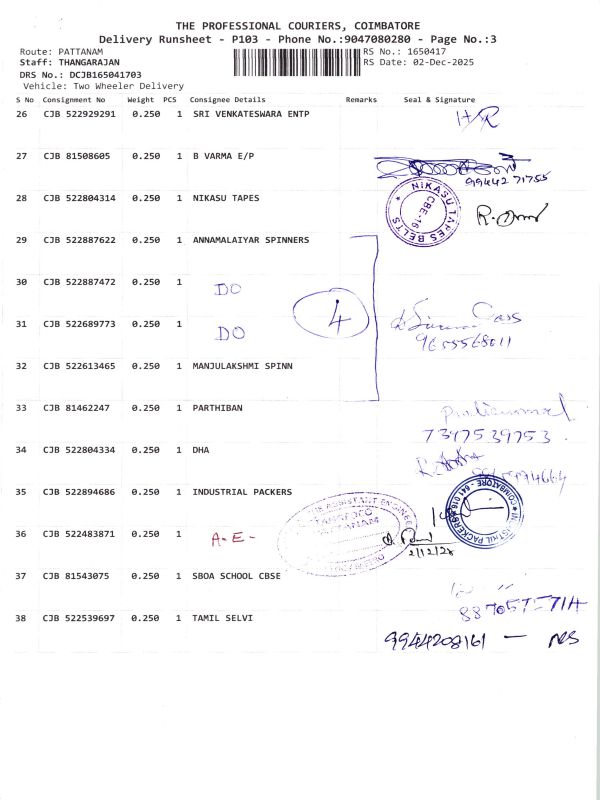 THE PROFESSIONAL COURIERS, COIMBATORE
Delivery Runsheet - P103 - Phone No.:9047080280 - Page No.:3
Route: PATTANAM RS No.: 1650417
Staff: THANGARAJAN RS Date: 02-Dec-2025
DRS No.: DCJB165041703
Vehicle: Two Wheeler Delivery
S No Consignment No Weight PCS Consignee Details Remarks Seal & Signature
26 CJB 522929291 0.250 1 SRI VENKATESWARA ENTP
27 CJB 81508605 0.250 1 B VARMA E/P
99442 71755
28 CJB 522804314 0.250 1 NIKASU TAPES
NIKASU TAPES BELTS CBE-16
29 CJB 522887622 0.250 1 ANNAMALAIYAR SPINNERS
30 CJB 522887472 0.250 1 DO
4
31 CJB 522689773 0.250 1 DO
9655568011
32 CJB 522613465 0.250 1 MANJULAKSHMI SPINN
33 CJB 81462247 0.250 1 PARTHIBAN
7397539753
34 CJB 522804334 0.250 1 DHA
35 CJB 522894686 0.250 1 INDUSTRIAL PACKERS
36 CJB 522483871 0.250 1 A-E-
ASSISTANT ENGINEER
COIMBATORE - 641 016
37 CJB 81543075 0.250 1 SBOA SCHOOL CBSE
38 CJB 522539697 0.250 1 TAMIL SELVI
9944208161 -